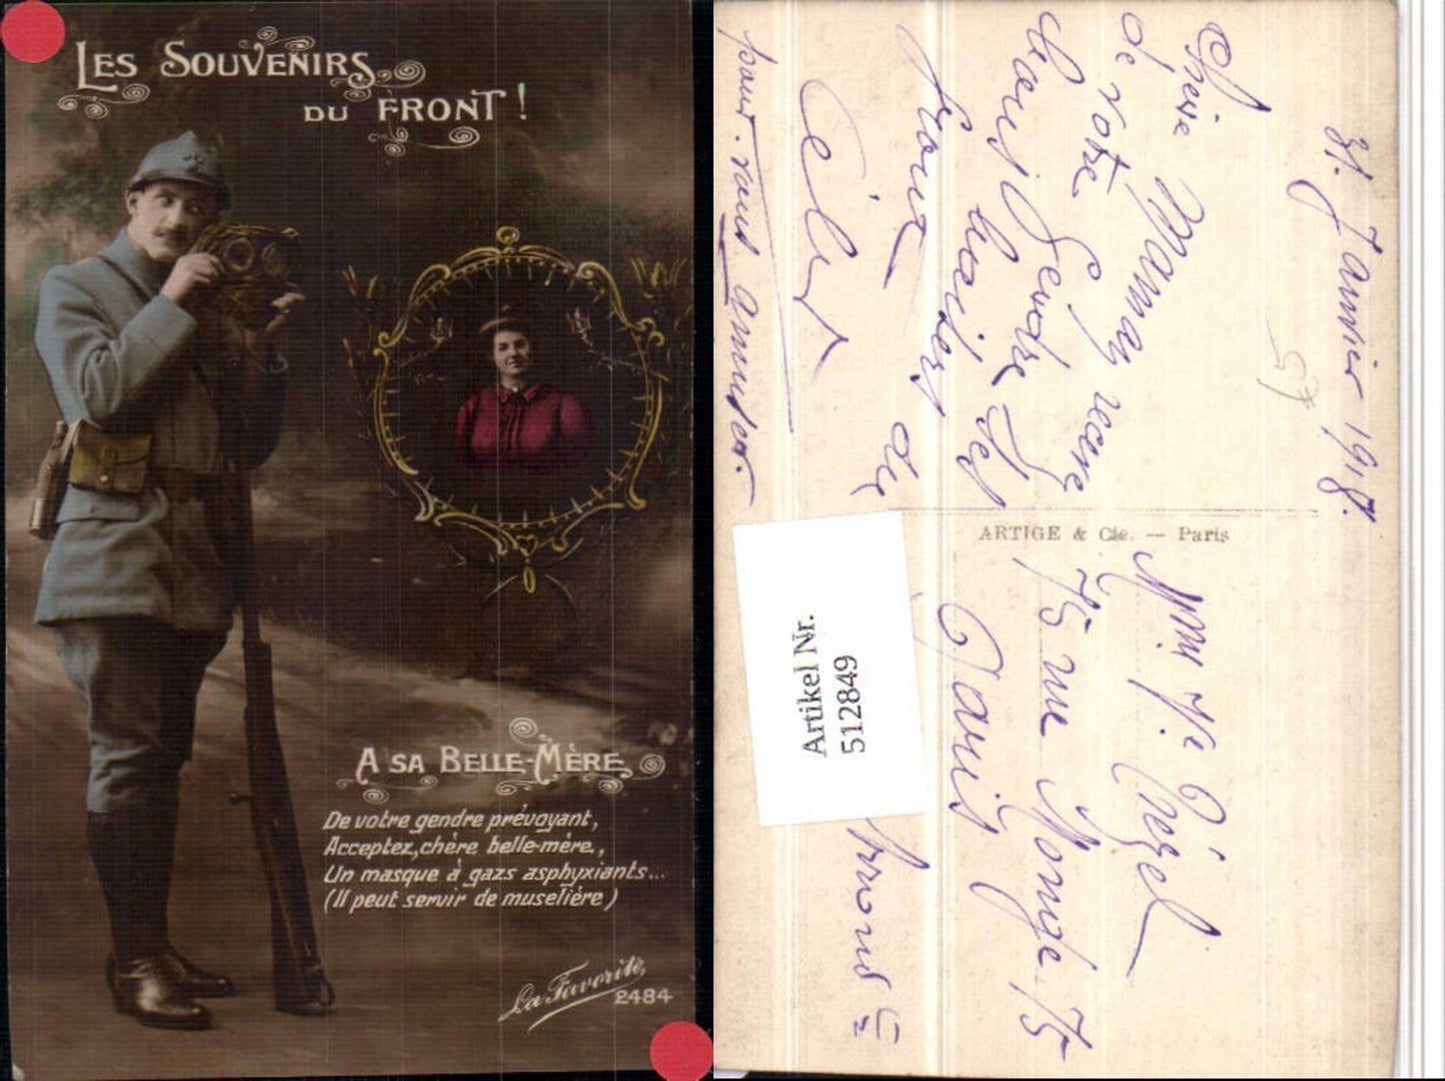 LES SOUVENIRS
DU FRONT !
A SA BELLE-MÈRE
De votre gendre prévoyant,
Acceptez, chère belle-mère,
Un masque à gazs asphyxiants...
(Il peut servir de muselière)
La Favorite,
2484
31. Janvier 1918.
57
Chère Maman recere
de votre
Gendre les
du
front
pour vous amuser.
ARTIGE & Cie. — Paris
75 rue Monge 75
Paris
Artikel Nr.
512849